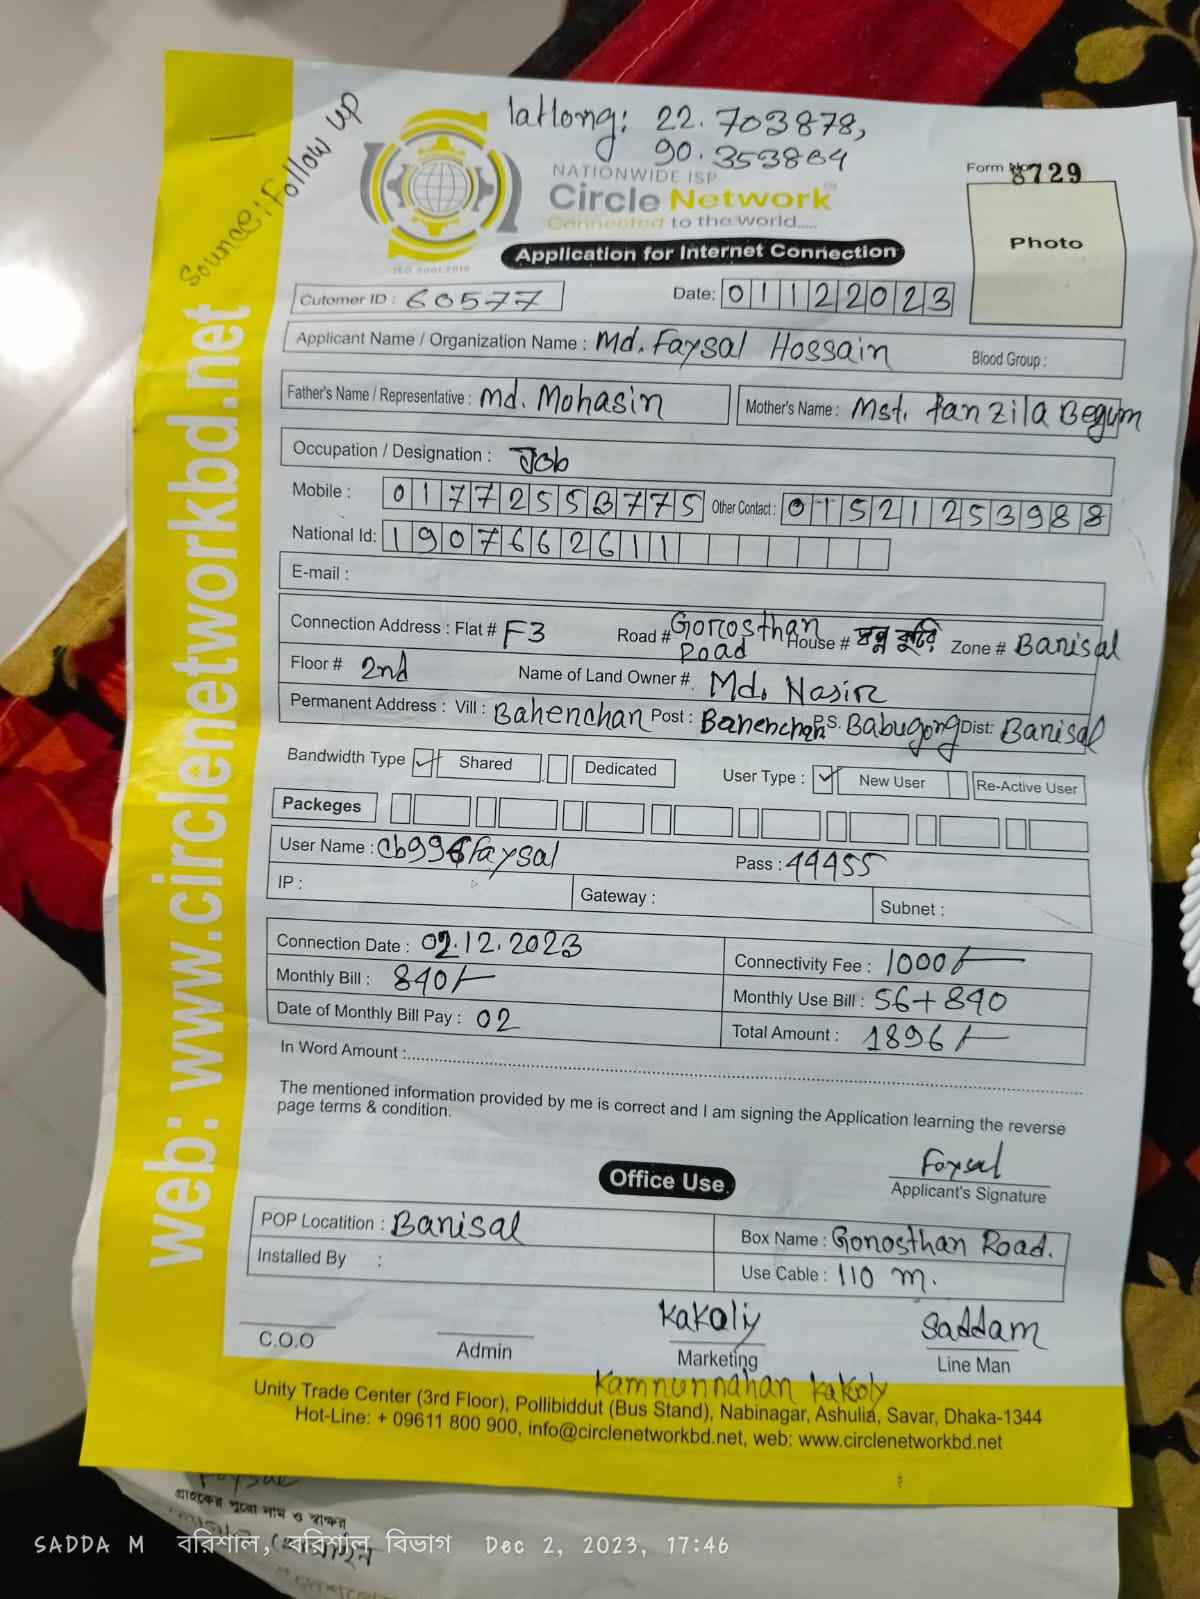 Source: Follow up
latlong: 22.703878,
90.353864
NATIONWIDE ISP
Circle Network
Connected to the world.....
ISO 9001:2015
Form No 8729
Photo
Application for Internet Connection
Cutomer ID : 60577 Date: 01122023
Applicant Name / Organization Name : Md. Faysal Hossain Blood Group :
Father's Name / Representative : Md. Mohasin Mother's Name : Mst. Tanzila Begum
Occupation / Designation : Job
Mobile : 01772553775 Other Contact : 01521253988
National Id: 1907662611
E-mail :
Connection Address : Flat # F3 Road # Gorosthan Road House # Zone # Barisal
Floor # 2nd Name of Land Owner # Md. Nasir
Permanent Address : Vill : Baherchar Post : Baherchar P.S. Babugong Dist: Barisal
Bandwidth Type Shared Dedicated User Type : New User Re-Active User
Packeges
User Name : cb996faysal Pass : 44455
IP : Gateway : Subnet :
Connection Date : 02.12.2023 Connectivity Fee : 1000/-
Monthly Bill : 840/- Monthly Use Bill : 56+840
Date of Monthly Bill Pay : 02 Total Amount : 1896/-
In Word Amount :
The mentioned information provided by me is correct and I am signing the Application learning the reverse
page terms & condition.
Faysal
Applicant's Signature
Office Use.
POP Locatition : Barisal Box Name : Gorosthan Road.
Installed By : Use Cable : 110 m.
Kakoliy Saddam
C.O.O Admin Marketing Line Man
Kamrunnahar Kakoly
Unity Trade Center (3rd Floor), Pollibiddut (Bus Stand), Nabinagar, Ashulia, Savar, Dhaka-1344
Hot-Line: + 09611 800 900, info@circlenetworkbd.net, web: www.circlenetworkbd.net
web: www.circlenetworkbd.net
Faysal
গ্রাহকের পুরো নাম ও স্বাক্ষর
SADDA M বরিশাল, বরিশাল বিভাগ Dec 2, 2023, 17:46